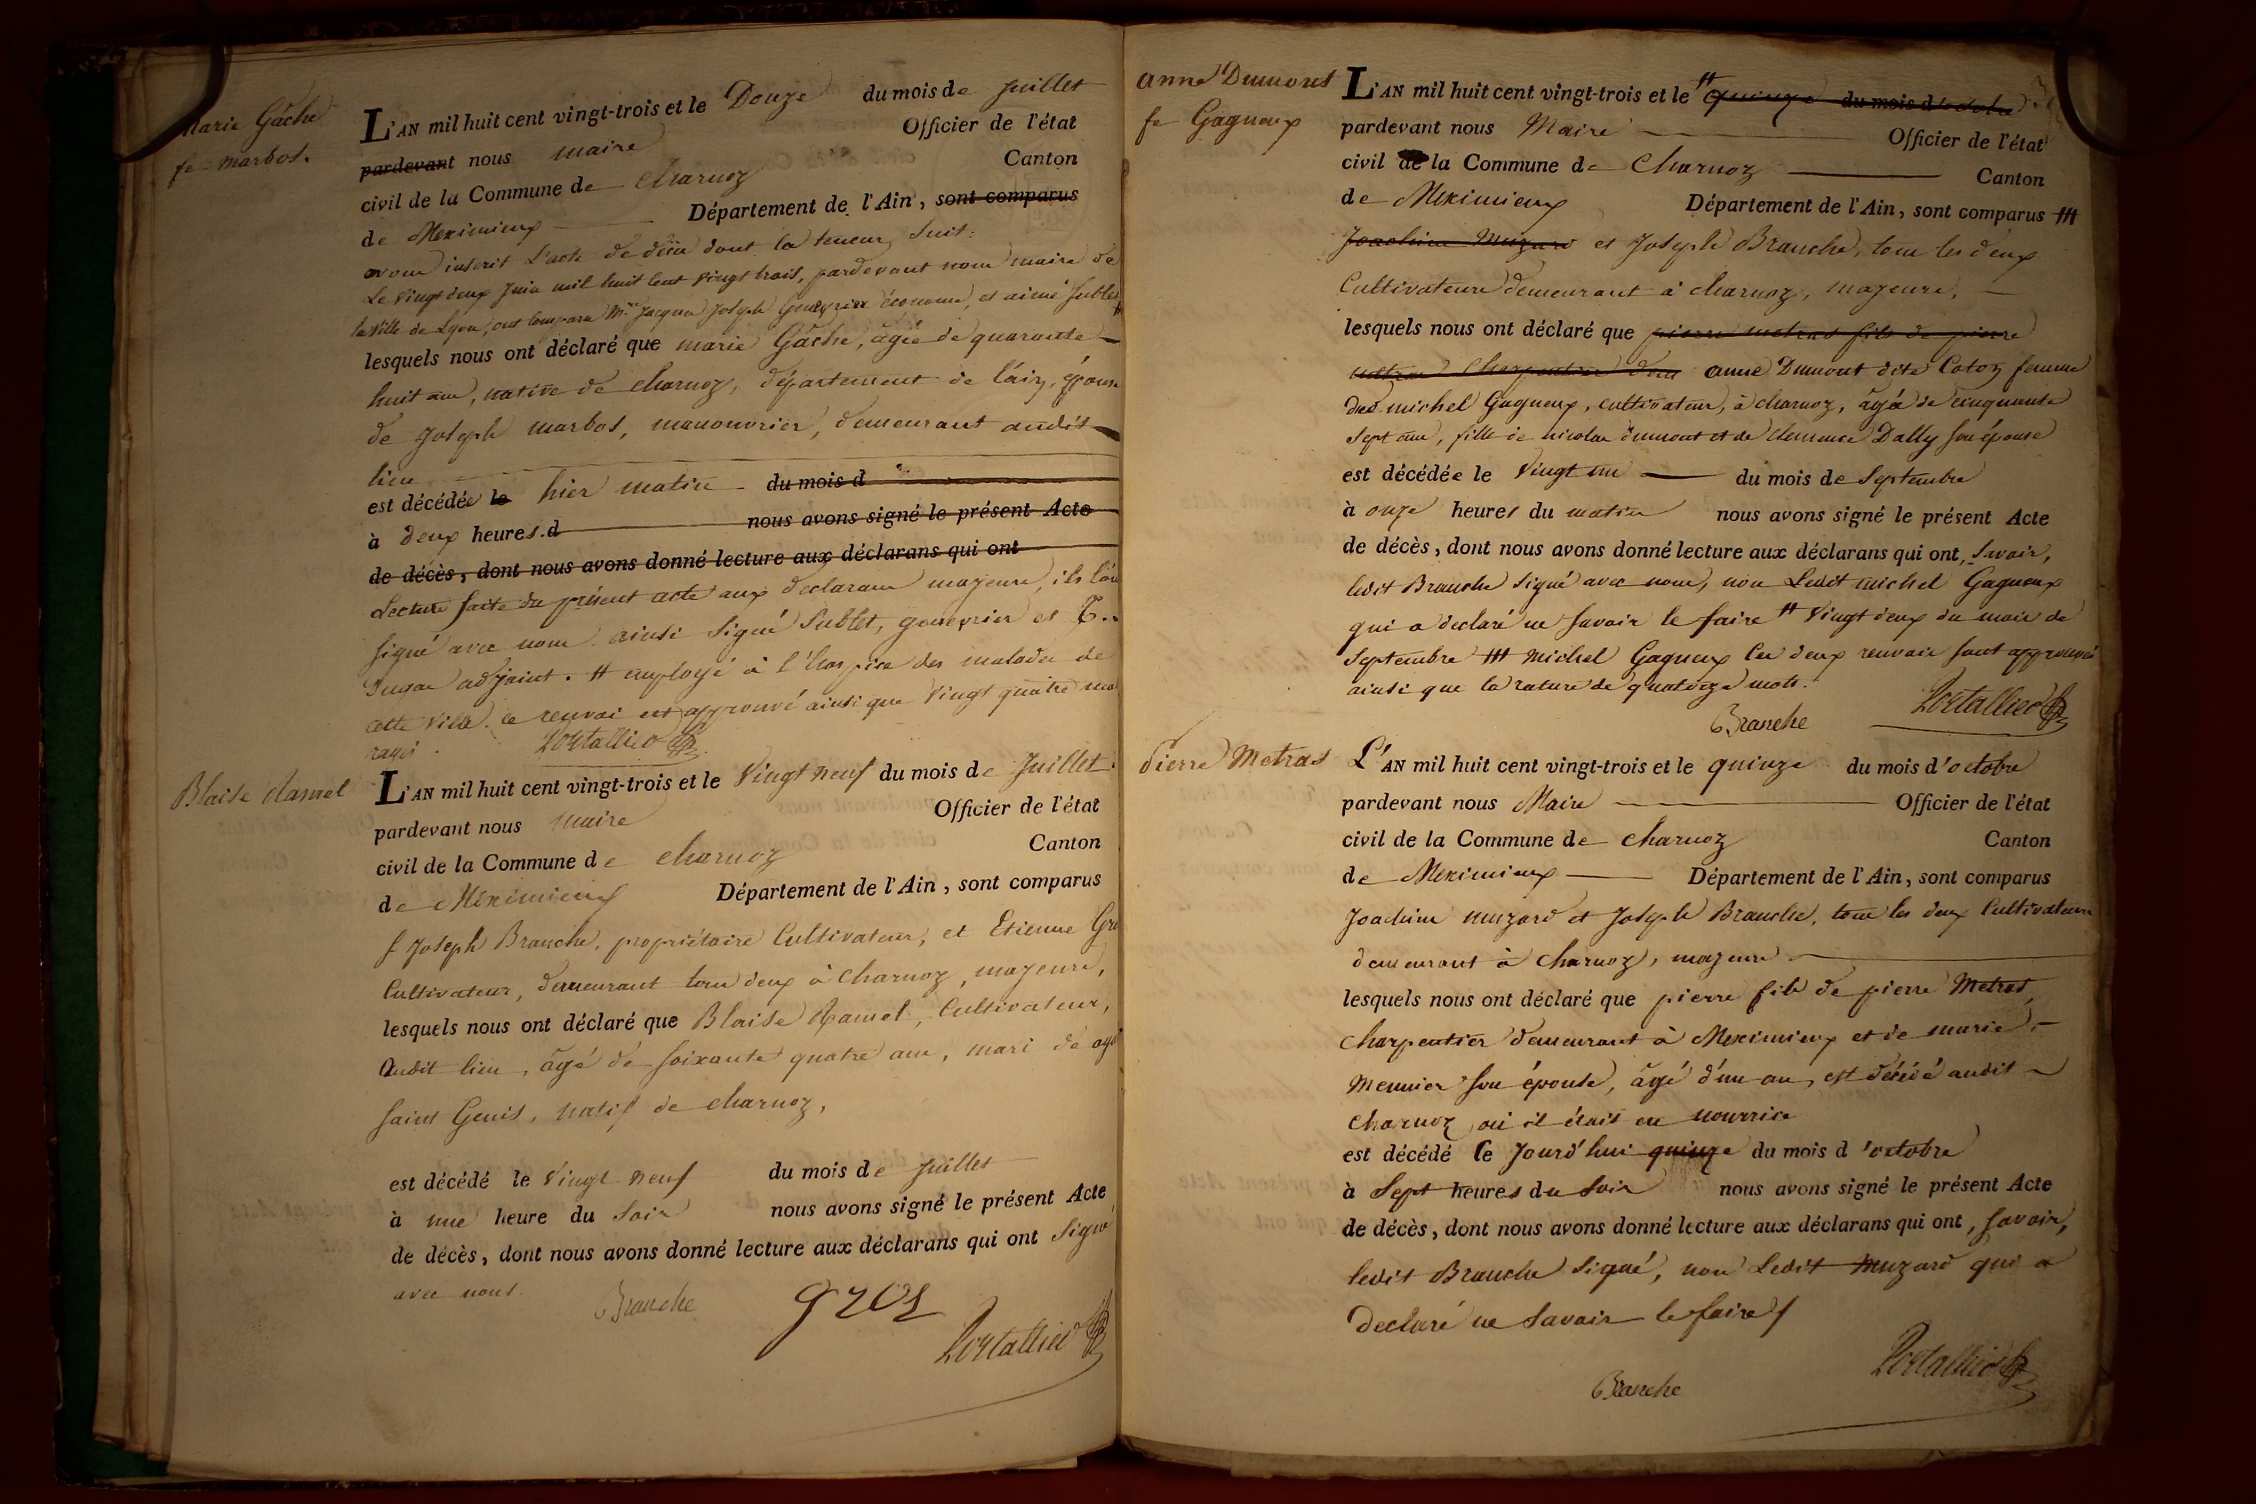 Marie Gâche
fe marbos.
L'AN mil huit cent vingt-trois et le Douze du mois de Juillet
pardevant nous maire Officier de l'état
civil de la Commune de charnoz Canton
de Meximieux Département de l'Ain, sont comparus
avons inscrit l'acte de décès dont la teneur suit:
Le vingt deux Juin mil huit cent vingt trois, pardevant nous maire de
la ville de Lyon, ont comparu Mrs Jacques Joseph économe, et aimé Sublet #
lesquels nous ont déclaré que marie Gâche, âgée de quarante
huit ans, native de charnoz, département de l'ain, épouse
de Joseph marbos, manouvrier, demeurant audit
lieu
est décédée le hier matin du mois d
à deux heures. d nous avons signé le présent Acte
de décès, dont nous avons donné lecture aux déclarans qui ont
Lecture faite du présent acte aux déclarans majeurs, ils l'ont
signé avec nous. ainsi signé Sublet, et
Dugas adjoint. # employé à l'hospice des malades de
cette ville. ce renvoi est approuvé ainsi que vingt quatre mots
rayés. Portallier
Blaise Ramel
L'AN mil huit cent vingt-trois et le Vingt neuf du mois de Juillet
pardevant nous maire Officier de l'état
civil de la Commune de charnoz Canton
de Meximieux Département de l'Ain, sont comparus
Joseph Branche, propriétaire Cultivateur, et Etienne Gros
Cultivateur, demeurant tous deux à charnoz, majeurs,
lesquels nous ont déclaré que Blaise Ramel, Cultivateur,
Audit lieu, âgé de soixante quatre ans, mari de
Saint Genis, natif de charnoz,
est décédé le Vingt neuf du mois de Juillet
à une heure du soir nous avons signé le présent Acte
de décès, dont nous avons donné lecture aux déclarans qui ont signé
avec nous.
Branche gros
Portallier
anne Dumont
fe Gagneux
L'AN mil huit cent vingt-trois et le # quinze du mois d'octobre
pardevant nous Maire Officier de l'état
civil de la Commune de Charnoz Canton
de Meximieux Département de l'Ain, sont comparus ###
Joachim Muzard et Joseph Branche, tous les deux
Cultivateurs demeurant à charnoz, majeurs,
lesquels nous ont déclaré que pierre metras fils de pierre
metras Charpentier dem anne Dumont dite Coton femme
de michel Gagneux, cultivateur, à charnoz, âgée de cinquante
sept ans, fille de nicolas dumont et de clemence Dally son épouse
est décédée le vingt un du mois de Septembre
à onze heures du matin nous avons signé le présent Acte
de décès, dont nous avons donné lecture aux déclarans qui ont, Savoir,
ledit Branche signé avec nous, non Ledit michel Gagneux
qui a declaré ne savoir le faire # Vingt deux du mois de
Septembre ### Michel Gagneux les deux renvois sont approuvés
ainsi que la rature de quatorze mots.
Branche Portallier
Pierre Metras
L'AN mil huit cent vingt-trois et le quinze du mois d'octobre
pardevant nous Maire Officier de l'état
civil de la Commune de charnoz Canton
de Meximieux Département de l'Ain, sont comparus
Joachim muzard et Joseph Branche, tous les deux Cultivateurs
demeurant à Charnoz, majeurs
lesquels nous ont déclaré que pierre fils de pierre Metras,
Charpentier demeurant à Meximieux et de marie
Meunier son épouse, âgé d'un an, est décédé audit
Charnoz où il était en nourrice
est décédé Ce Jourd'hui quinze du mois d'octobre
à Sept heures du soir nous avons signé le présent Acte
de décès, dont nous avons donné lecture aux déclarans qui ont, savoir,
ledit Branche signé, non Ledit Muzard qui a
declaré ne Savoir le faire
Branche Portallier